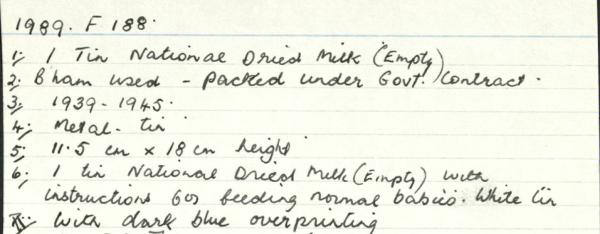 1989. F 188.
1; 1 Tin National Dried Milk (Empty)
2; B'ham used - packed under Govt. Contract.
3; 1939-1945.
4; Metal - tin
5; 11.5 cm x 18 cm height
6; 1 tin National Dried Milk (Empty) with
instructions for feeding normal babies. White tin
with dark blue overprinting